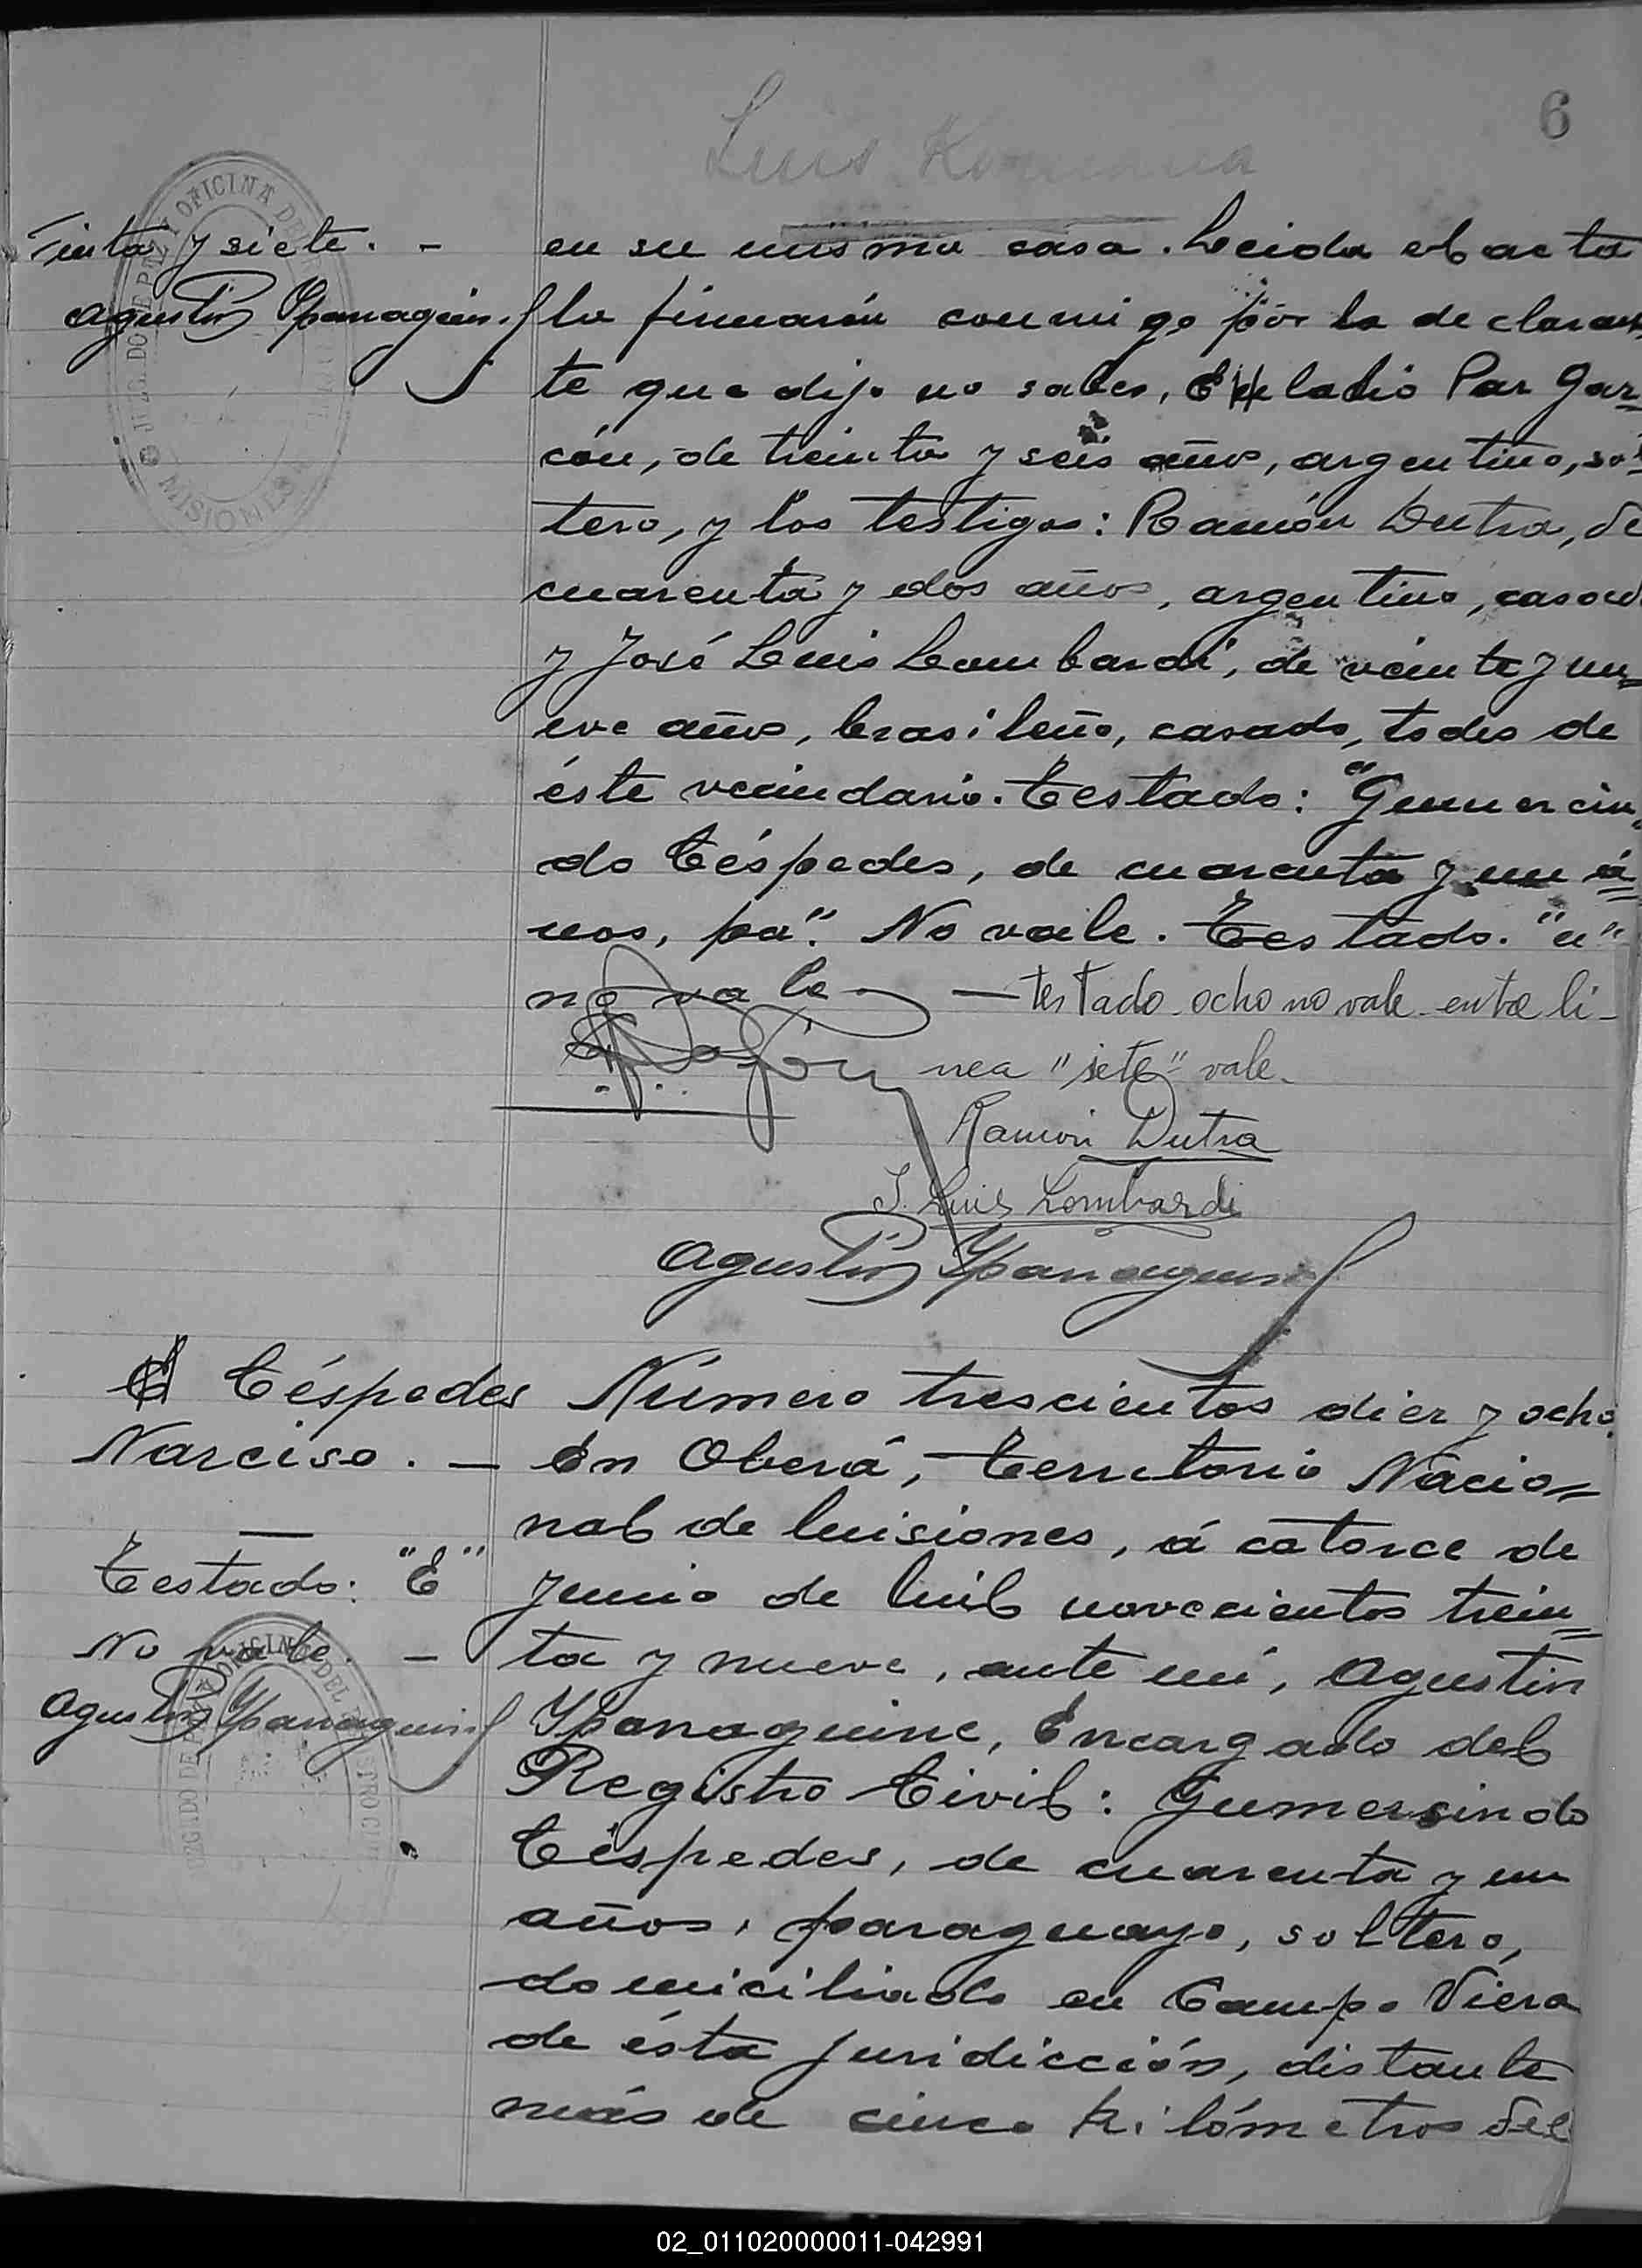 6
Luis
Treinta y siete. -
Agustin Ypanaguire
JUZGADO DE PAZ Y OFICINA DEL
MISIONES
en su misma casa. Leida el acta
la firmarón conmigo por la declaran
te que dijo no saber, Eleladio Paz Gar=
zón, de treinta y seis años, argentino, sol
tero, y los testigos: Ramón Dutra, de
cuarenta y dos años, argentino, casado
y José Luis Lombardi, de veinte y nu=
eve años, brasileño, casado, todos de
éste vecindario. Testado: "Gumercin=
do Céspedes, de cuarenta y un á=
nos, pa". No vale. Testado. "u"
no vale — testado ocho no vale entre li-
nea "siete" vale.
Ramon Dutra
J. Luis Lombardi
Agustin Ypanaguire
Céspedes
Narciso. -
Testado: "E"
No vale. -
Agustin Ypanaguire
Número trescientos diez y ocho.
En Oberá, Territorio Nacio=
nal de Misiones, á catorce de
Junio de mil novecientos trein=
ta y nueve, ante mí, Agustin
Ypanaguire, Encargado del
Registro Civil: Gumersindo
Céspedes, de cuarenta y un
años, paraguayo, soltero,
domiciliado en Campo Viera
de ésta juridicción, distante
más de cinco kilómetros del
02_011020000011-042991